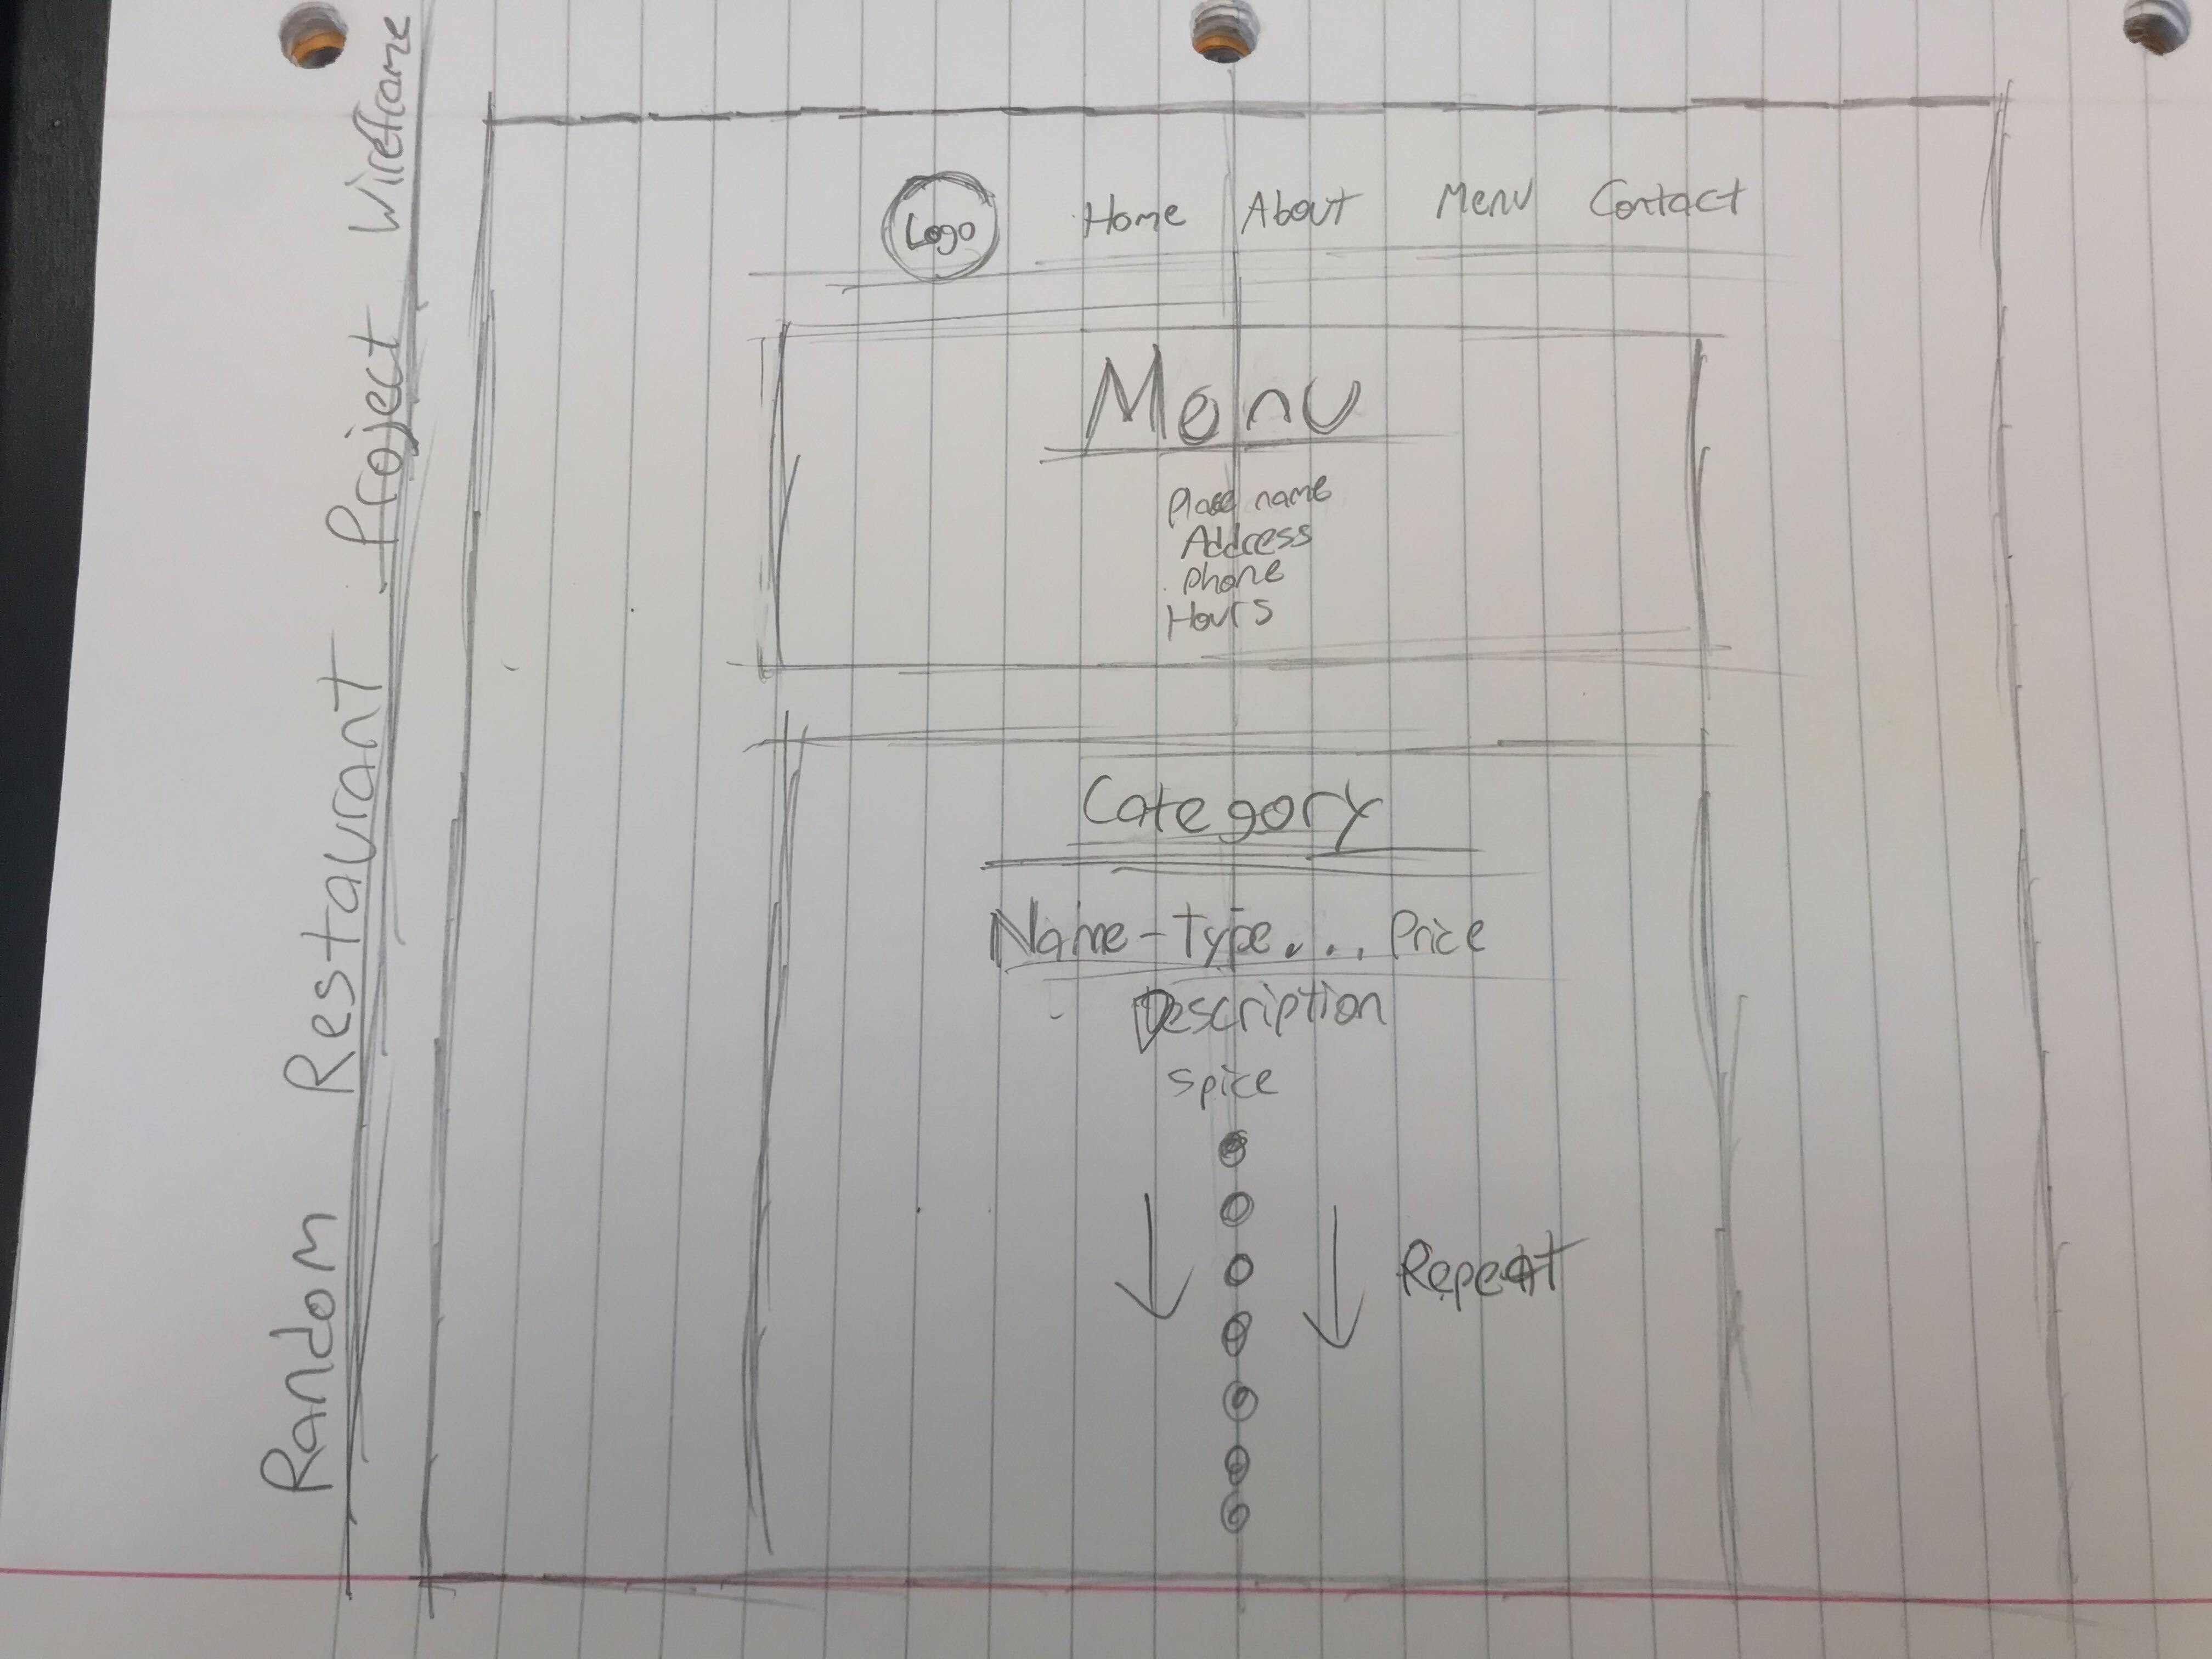 Random Restaurant Project Wireframe
Logo Home About Menu Contact
Menu
Place name
Address
Phone
Hours
Category
Name-Type... Price
Description
Spice
Repeat